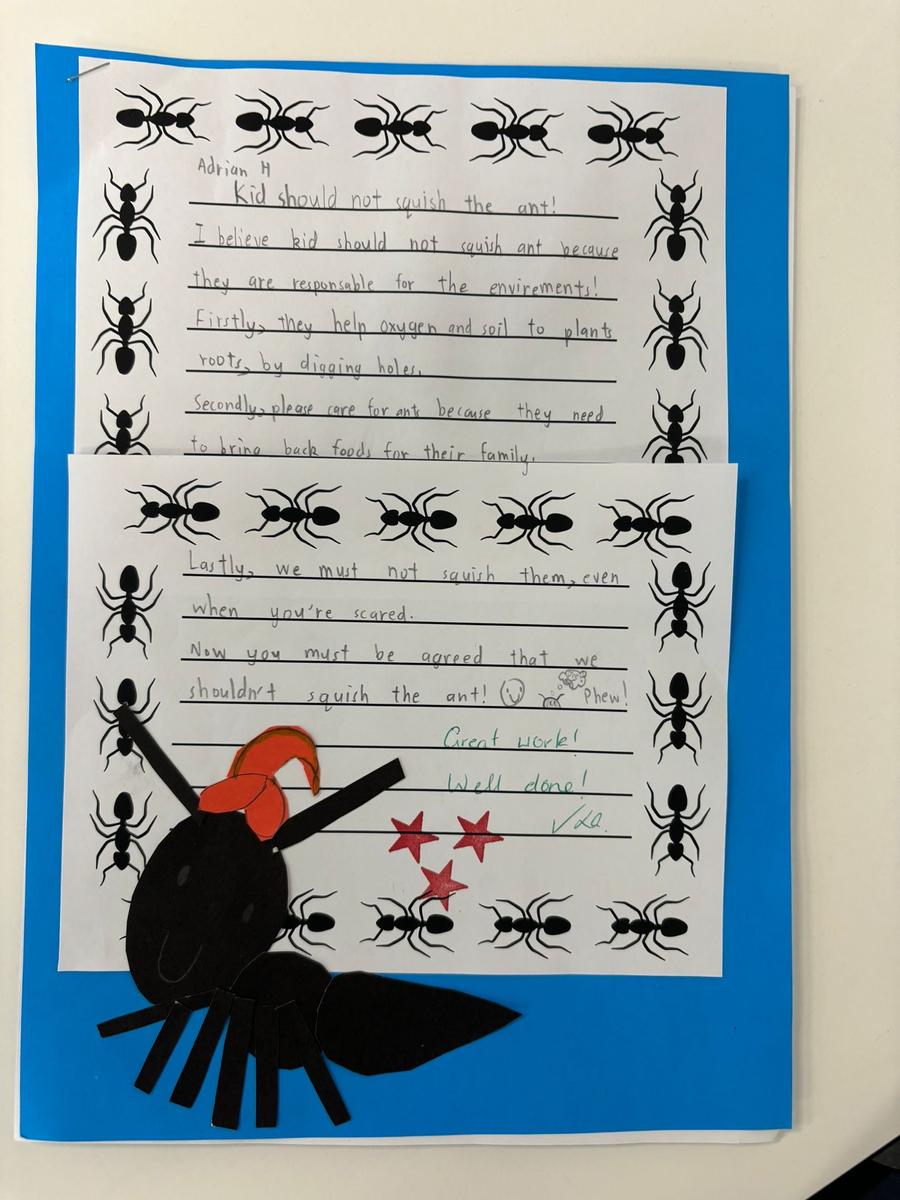 Adrian H
Kid should not squish the ant!
I believe kid should not squish ant because
they are responsable for the envirements!
Firstly, they help oxygen and soil to plants
roots, by digging holes.
Secondly, please care for ants because they need
to bring back foods for their family.
Lastly, we must not squish them, even
when you're scared.
Now you must be agreed that we
shouldn't squish the ant! Phew!
Great work!
Well done!